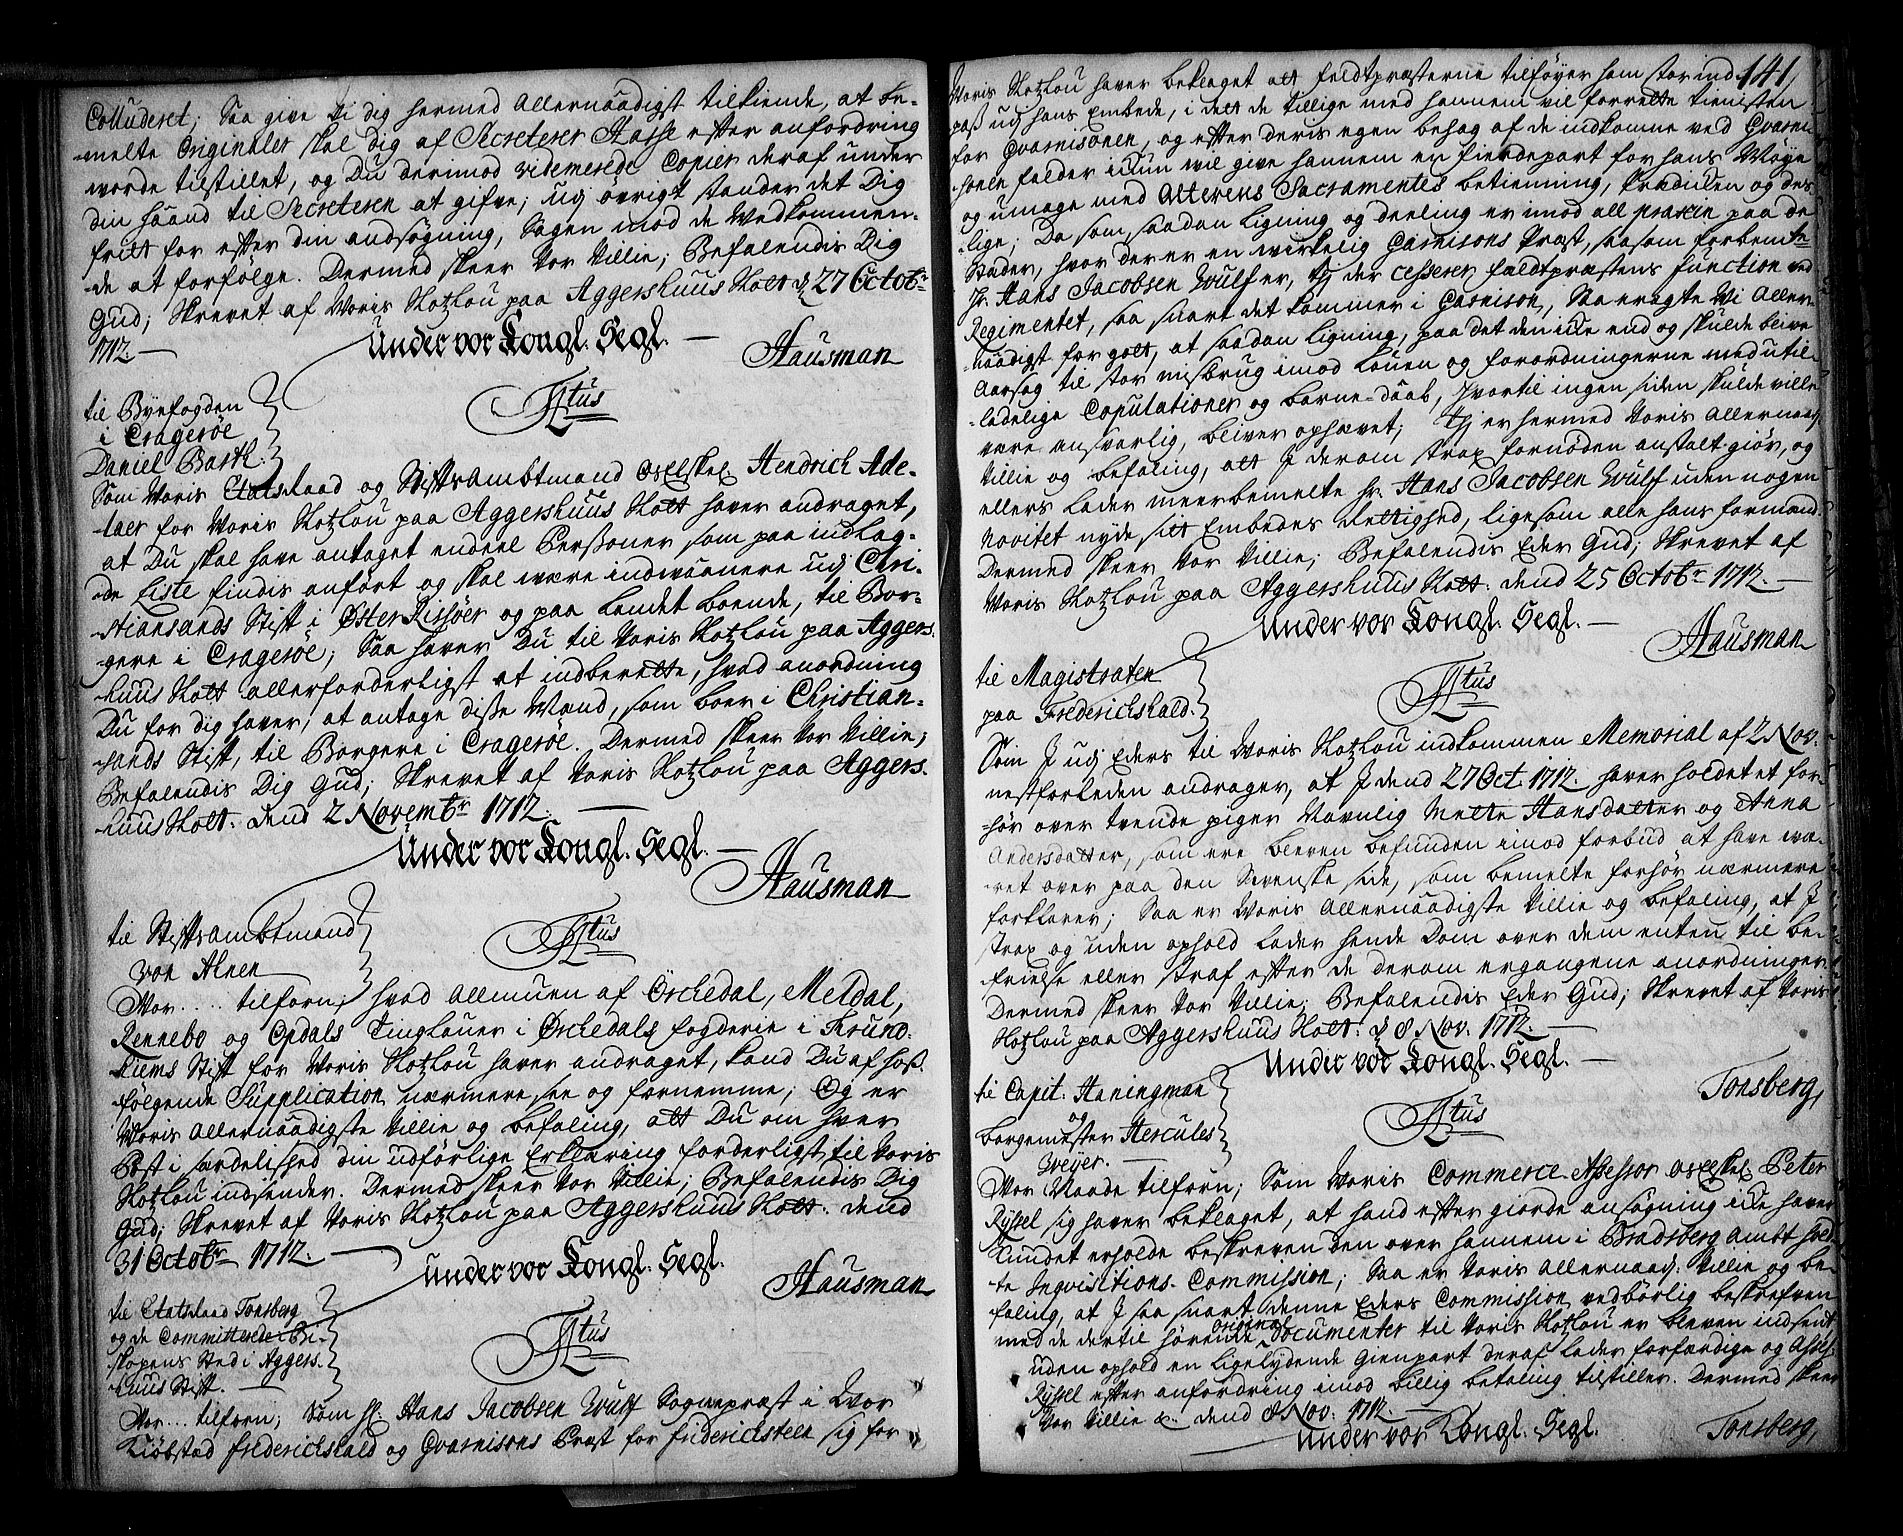 Colluderet; Saa give Vi dig hermed Allernaadigst tilkiende, at be-
melte Originaler skal dig af Secreterer Hasse efter anfordring
worde tilstillet, og Du derimod videmerede Copier deraf under
din haand til Secreteren at gifve; udj övrigt stander det Dig
frilt for efter din andsøgning, Sagen imod de Vedkommen-
de at forfølge. Dermed skeer Vor Villie; Befalendis Dig
Gud; Skrevet af Voris Slotzlou paa Aggershuus Slott d 27 Octobr
1712.
Under vor Kongl. Segl.
Hausman
til Byefogden
i Cragerøe
Daniel Barth.
Ftus
Som Voris Etatsraad og Stiftsambtmand Hendrich Ade-
laer for Voris Slotzlou paa Aggershuus Slott haver andraget,
at Du skal have antaget endeel Perssoner som paa indlag-
de Liste findis anført og skal være indwaanere udj Chri-
stiansands Stift i ØsterRissøer og paa landet boende, til Bor-
gere i Cragerøe; Saa haver Du til Voris Slotzlou paa Aggers-
huus Slott allerforderligst at indberette, hvad anordning
Du for dig haver, at antage disse Mænd, som boer i Christian-
sands Stift, til Borgere i Cragerøe. Dermed skeer Vor Villie;
Befalendis Dig Gud; Skrevet af Voris Slotzlou paa Aggers-
huus Slott. dend 2 Novembr 1712.
Under vor Kongl. Segl.
Hausman
til Stiftsambtmand
von Ahnen
Ftus
Vor.... tilforn; hvad Allmuen af Örchedal, Meldal,
Rennebo og Opdals Tinglauer i Örchedals fogderie i Trund-
hiems Stift for Voris Slotzlou haver andraget, kand Du af hoß-
følgende Supplication nærmere see og fornemme; Og er
Voris Allernaadigste Villie og befaling, att Du om hver
Post i særdelished din udförlige Erklaring forderligst til Voris
Slotzlou indsender. Dermed skeer Vor Villie; Befalendis Dig
Gud; Skrevet af Voris Slotzlou paa Aggershuus Slott. dend
31 Octobr 1712.
Under vor Kongl. Segl.
Hausman
til Etatsraad Tonsberg
og de Committerede i Bi-
skopens Sted i Aggers-
huus Stift.
Ftus
Vor.... tilforn; Som hr. Hans Jacobsen Wulf Sogneprest i Vor
Kiøbstad Frederichshald og Gvarnisons Præst for Friderichsteen sig for
141
Voris Slotzlou haver beklaget att Feldtpræsterne tilføyer ham stor ind-
paß udj hans Embede, i dett de tillige med hannem vil forrette tienisten
for Gvarnisonen, og efter deris egen behag af de indkomne ved Gvarni-
sonen falder ickun wil give hannem en fierdepart for hans Møye
og umage med Alterens Sacramentes betienning, Prædiken og des-
lige; Da som saadan ligning og deeling er imod all praxin paa de
Stæder, hvor der er en wirkelig Garnisons Præst, saasom forbemte
hr. Hans Jacobsen Wulf er, thj der cesserer Feldtpræstens function ved
Regimentet, saa snart det kommer i Garnison, Saa eragte Vi Aller-
naadigst for gott, at saadan ligning, paa det den icke end og skulde blive
Aarsag til stor misbrug imod Louen og forordningerne med util-
ladelige Copulationer og barne-daab, hvortil ingen siden skulde ville
være ansvarlig, bliver ophævet; thj er hermed Voris Allernaad:
Villie og befaling, att I derom strax fornøden anstalt giør, og
ellers lader meerbemelte hr. Hans Jacobsen Wulf uden nogen
novitet nyde sitt Embedes Rettighed, ligesom alle hans formænd.
Dermed skeer Vor Villie; Befalendis Eder Gud; Skrevet af
Voris Slotzlou paa Aggershuus Slott. dend 25 Octobr 1712.
Under vor Kongl. Segl.
Hausman
til Magistraten
paa Frederichshald.
Ftus
Som I udj Eders til Voris Slotzlou indkommen Memorial af 2 Nov.
nestforleden andrager, at I dend 27 Oct. 1712. haver holdet et for-
hør over tvende piger Navnlig Mette Hansdatter og Anna
Andersdatter, som ere bleven befunden imod forbud at have wæ-
ret over paa den Svenske side, som bemelte forhör nærmere
forklarer; Saa er Voris Allernaadigste Villie og befaling, at I
strax og uden ophold lader hende Dom over dem enten til be-
frielse eller straf efter de derom ergangene anordninger
Dermed skeer Vor Villie; Befalendis Eder Gud; Skrevet af Voris
Slotzlou paa Aggershuus Slott. d 8 Nov. 1712.
Under vor Kongl. Segl.
Tonsberg,
til Capit. Haningman
og
borgemester Hercules
Weyer.
Ftus
Vor Naade tilforn; Som Voris Commerce-Assessor Peter
Ryssel sig haver beklaget, at hand efter giorde ansøgning icke haver
kundet erholde beskreven den over hannem i Bradsberg ambt hold-
te Inqvisitions-Commission; Saa er Voris Allernaad: Villie og be-
faling, at I saa snart denne Eders Commission vedbörlig beskrefven
med de dertil hørende original Documenter til Voris Slotzlou er bleven indsent
uden ophold en ligelydende Gienpart deraf lader forfærdige og Assess:
Ryssel efter anfordring imod billig betaling tilstiller. Dermed skeer
Vor Villie &c. dend 8 Nov. 1712.
Under vor Kongl. Segl.
Tonsberg,